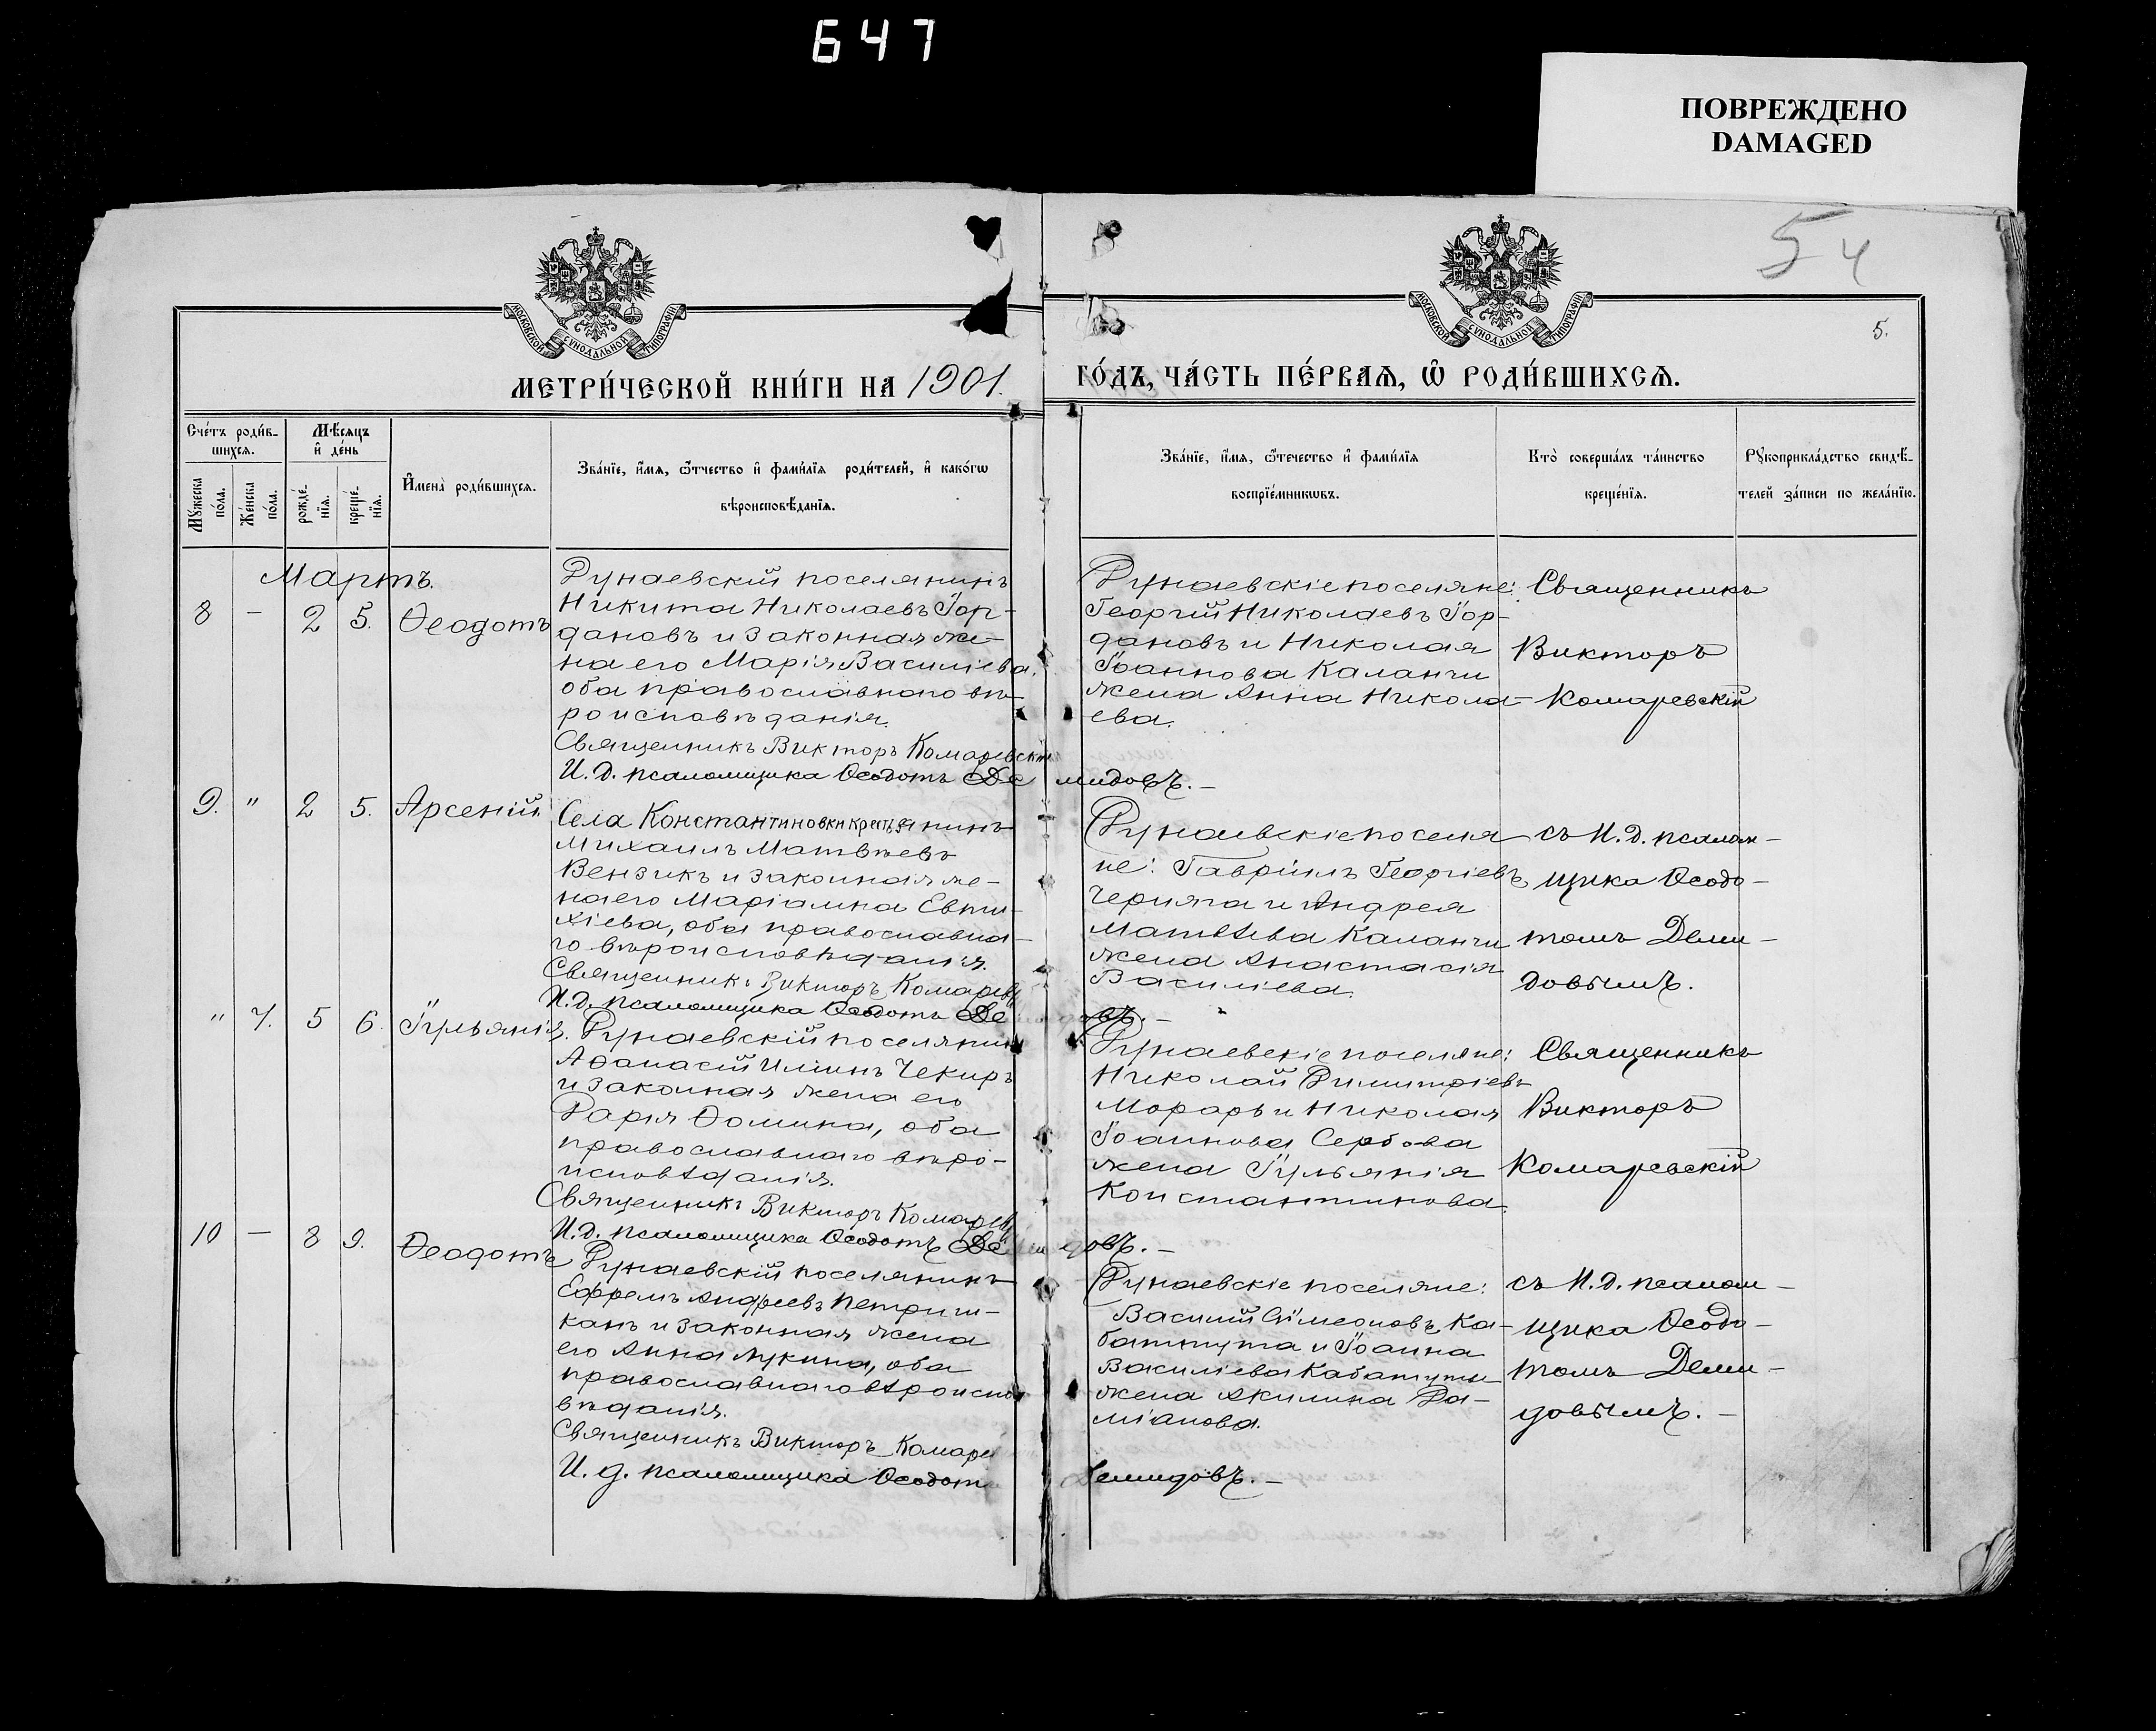 647
ПОВРЕЖДЕНО
DAMAGED
54
5.
МОСКОВСКОЙ СѴНОДАЛЬНОЙ ТИПОГРАФІИ
МОСКОВСКОЙ СѴНОДАЛЬНОЙ ТИПОГРАФІИ
МЕТРИ́ЧЕСКОЙ КНИ́ГИ НА 1901.
ГО́ДЪ, ЧА́СТЬ ПЕ́РВАѦ, Ѿ РОДИ́ВШИХСѦ.
Сче́тъ роди́в-
шихсѧ.
Мꙋ́жеска по́ла.
Же́нска по́ла.
Мѣ́сѧцъ
и҆ де́нь
рожде́-нїѧ.
креще́-нїѧ.
И҆мена̀ роди́вшихсѧ.
Зва́нїе, и҆́мѧ, ѻ҆́тчество и҆ фами́лїѧ роди́телей, и҆ како́гѡ
вѣроисповѣ́данїѧ.
Зва́нїе, и҆́мѧ, ѻ҆́течество и҆ фами́лїѧ
воспрїе́мникѡвъ.
Кто̀ соверша́лъ та́инство
креще́нїѧ.
Рꙋкоприкла́дство свидѣ́-
телей за́писи по жела́нїю.
Мартъ.
8 - 2 5. Ѳеодотъ
Рунаевскій поселянинъ
Никита Николаевъ Іор-
дановъ и законная же-
на его Марія Василіева,
оба православнаго вѣ-
роисповѣданія.
Священникъ Викторъ Комаревскій
И. д. псаломщика Ѳеодотъ Демидовъ. –
Рунаевскіе поселяне:
Георгій Николаевъ Іор-
дановъ и Николая
Іоаннова Каланчи
жена Анна Никола-
ева.
Священникъ
Викторъ
Комаревскій
9. " 2 5. Арсеній.
Села Константиновки крестьянинъ
Михаилъ Матвѣевъ
Вензикъ и законная же-
на его Маріамна Евти-
хіева, оба православна-
го вѣроисповѣданія.
Священникъ Викторъ Комарев
И. д. псаломщика Ѳеодотъ Демидовъ. –
Рунаевскіе поселя
не: Гавріилъ Георгіевъ
Черняга и Андрея
Матвѣева Каланчи
жена Анастасія
Василіева.
съ И. д. псалом-
щика Ѳеодо-
томъ Деми-
довымъ.
" 7. 5 6. Іульянія.
Рунаевскій поселянинъ
Аѳанасій Иліинъ Чекиръ
и законная жена его
Дарія Ѳомина, оба
православнаго вѣро-
исповѣданія.
Священникъ Викторъ Комарев
И. д. псаломщика Ѳеодотъ Демидовъ. –
Рунаевскіе поселяне:
Николай Димитріевъ
Мораръ и Николая
Іоаннова Сербова
жена Іульянія
Константинова
Священникъ
Викторъ
Комаревскій
10 – 8 9. Ѳеодотъ
Рунаевскій поселянинъ
Ефремъ Андреевъ Петричи-
канъ и законная жена
его Анна Лукина, оба
православнаго вѣроиспо
вѣданія.
Священникъ Викторъ Комарев
И. д. псаломщика Ѳеодотъ Демидовъ. –
Рунаевскіе поселяне:
Василій Симеоновъ Ка-
батнута и Іоанна
Василіева Кабатнути
жена Акилина Да-
міанова.
съ И. д. псалом-
щика Ѳеодо-
томъ Деми-
довымъ. –